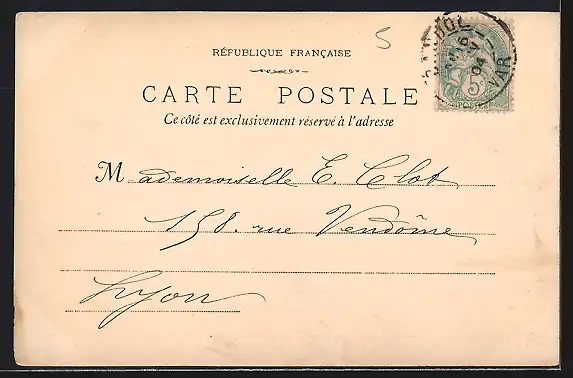 5
RÉPUBLIQUE FRANÇAISE
CARTE POSTALE
Ce côté est exclusivement réservé à l'adresse
Mademoiselle E. Clot
158. rue Vendôme
Lyon
16
04
VAR
5
POSTE